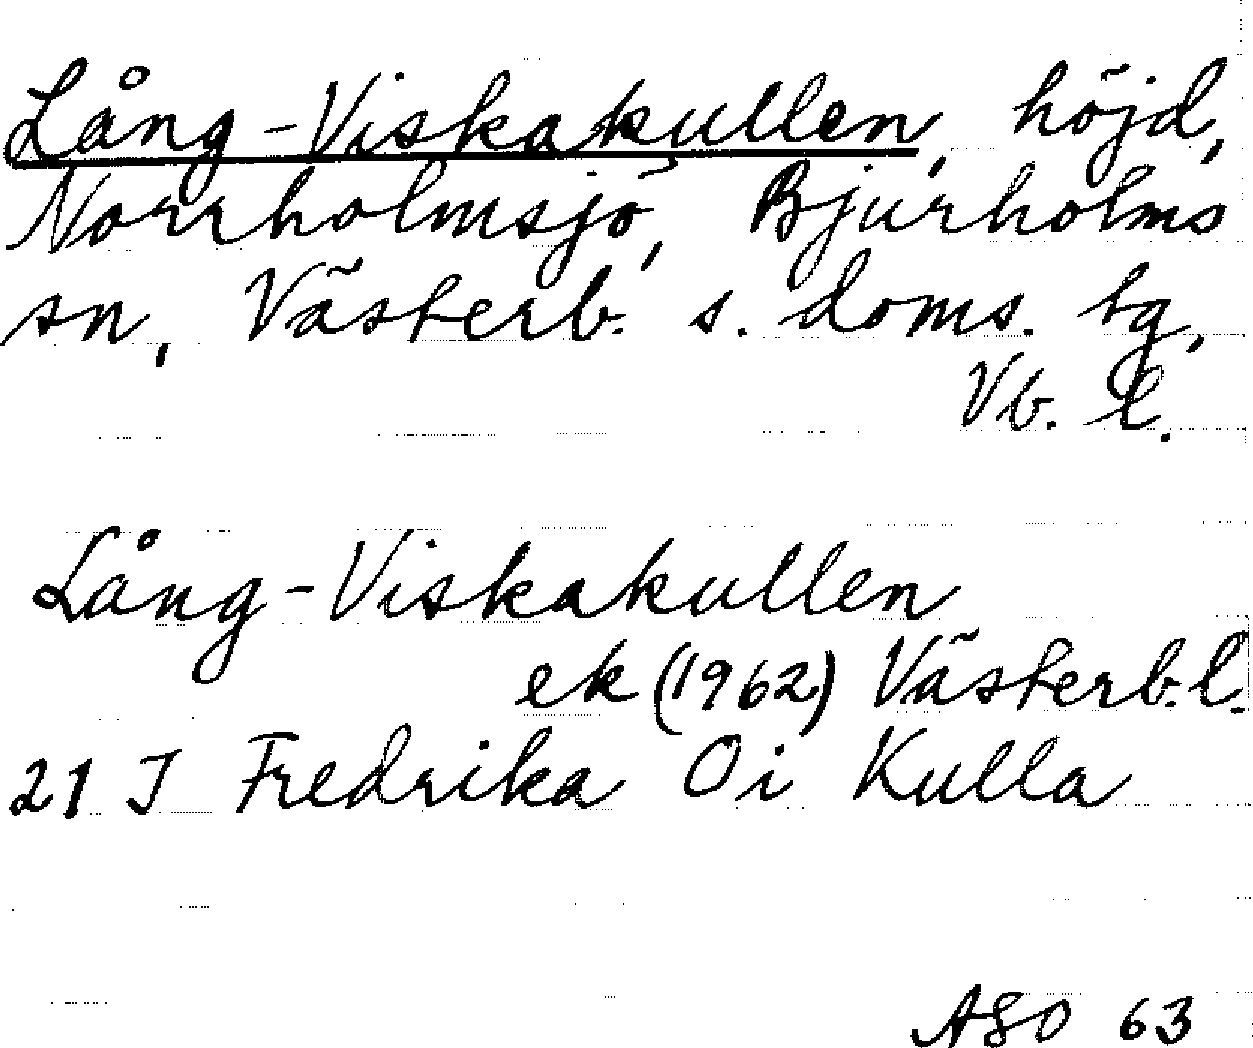 Lång-Viskakullen, höjd,
Norrholmsjö, Bjurholms
sn, Västerb. s. doms. tg,
Vb. l.
Lång-Viskakullen
ek (1962) Västerb. l.
21 J Fredrika Öi Kulla
ASO 63